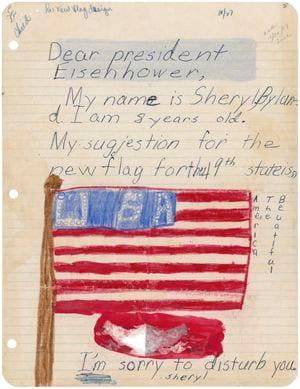 his new flag design
Dear president
Eisenhower,
My name is Sheryl Bylun-
d. I am 8 years old.
My sugjestion for the
new flag forthe 49th stateis
America
The
Beautiful
I'm sorry to disturb you
sheryl